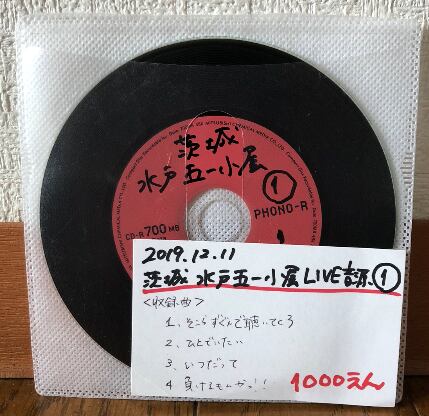 茨城
水戸五一小屋
①
PHONO-R
CD-R 700 MB
2019.12.11
茨城 水戸五一小屋 LIVE音源①
<収録曲>
1、そこらすぐんで聴いてくろ
2、ひとでいたい
3、いつだって
4 負けるもんか!!
1000えん